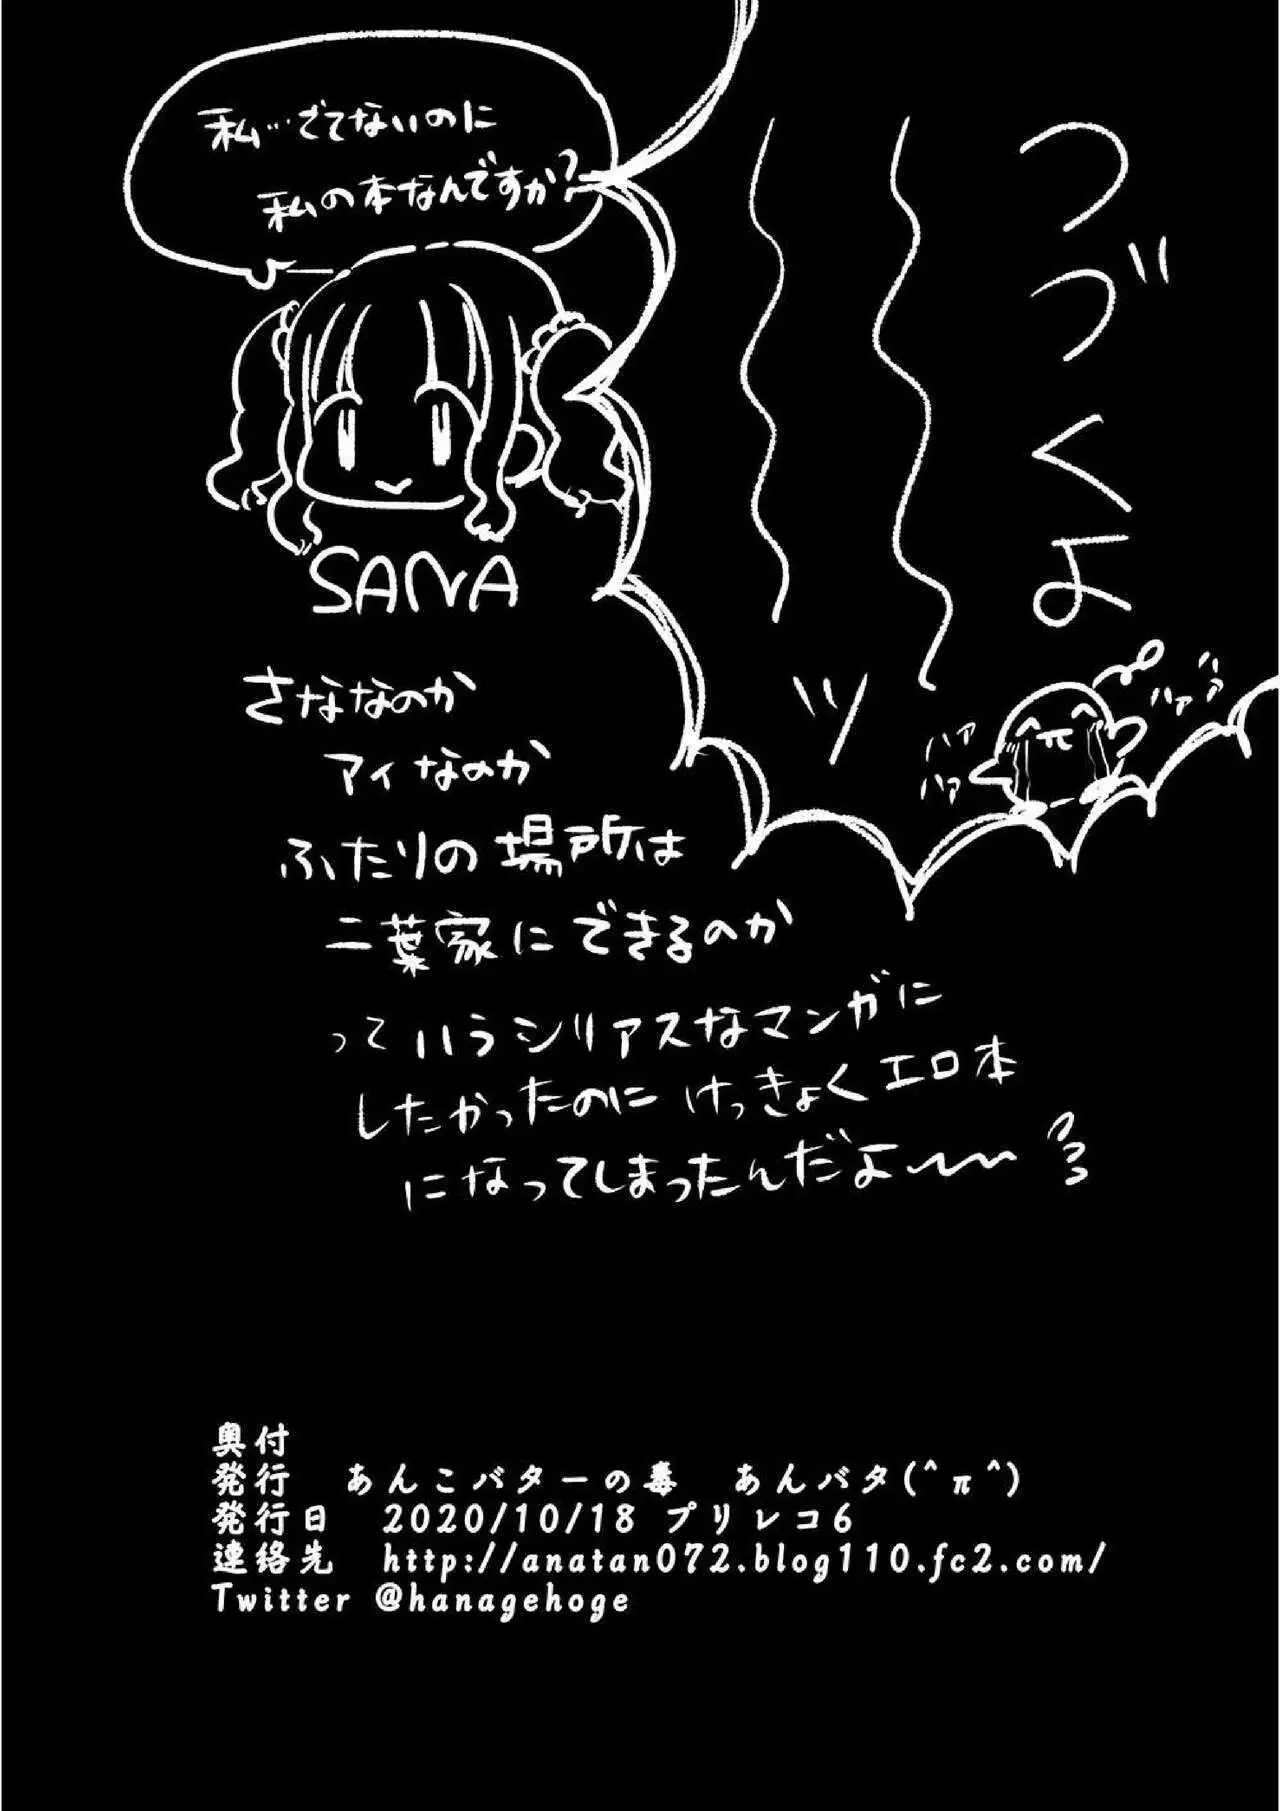 つづくよ
ッ
ハァ
ハァ
ハァ
ハァ
私…でてないのに
私の本なんですか?
SANA
さななのか
アイなのか
ふたりの場所は
二葉家にできるのか
っていうシリアスなマンガに
したかったのにけっきょくエロ本
になってしまったんだよ〜〜
奥付
発行 あんこバターの毒 あんバタ(^π^)
発行日 2020/10/18 プリレコ6
連絡先 http://anatan072.blog110.fc2.com/
Twitter @hanagehoge